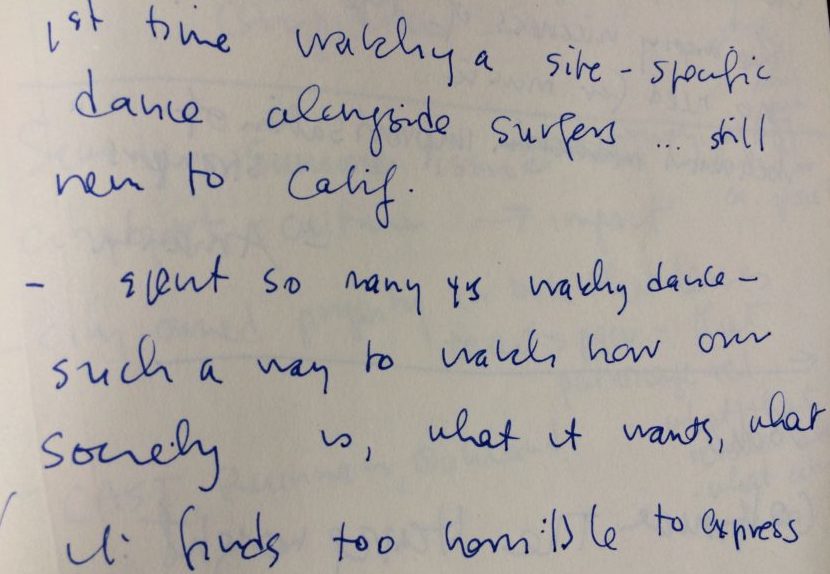 1st time watching a site-specific
dance alongside surfers ... still
new to Calif.
- spent so many ys watching dance -
such a way to watch how our
society is, what it wants, what
it finds too horrible to express